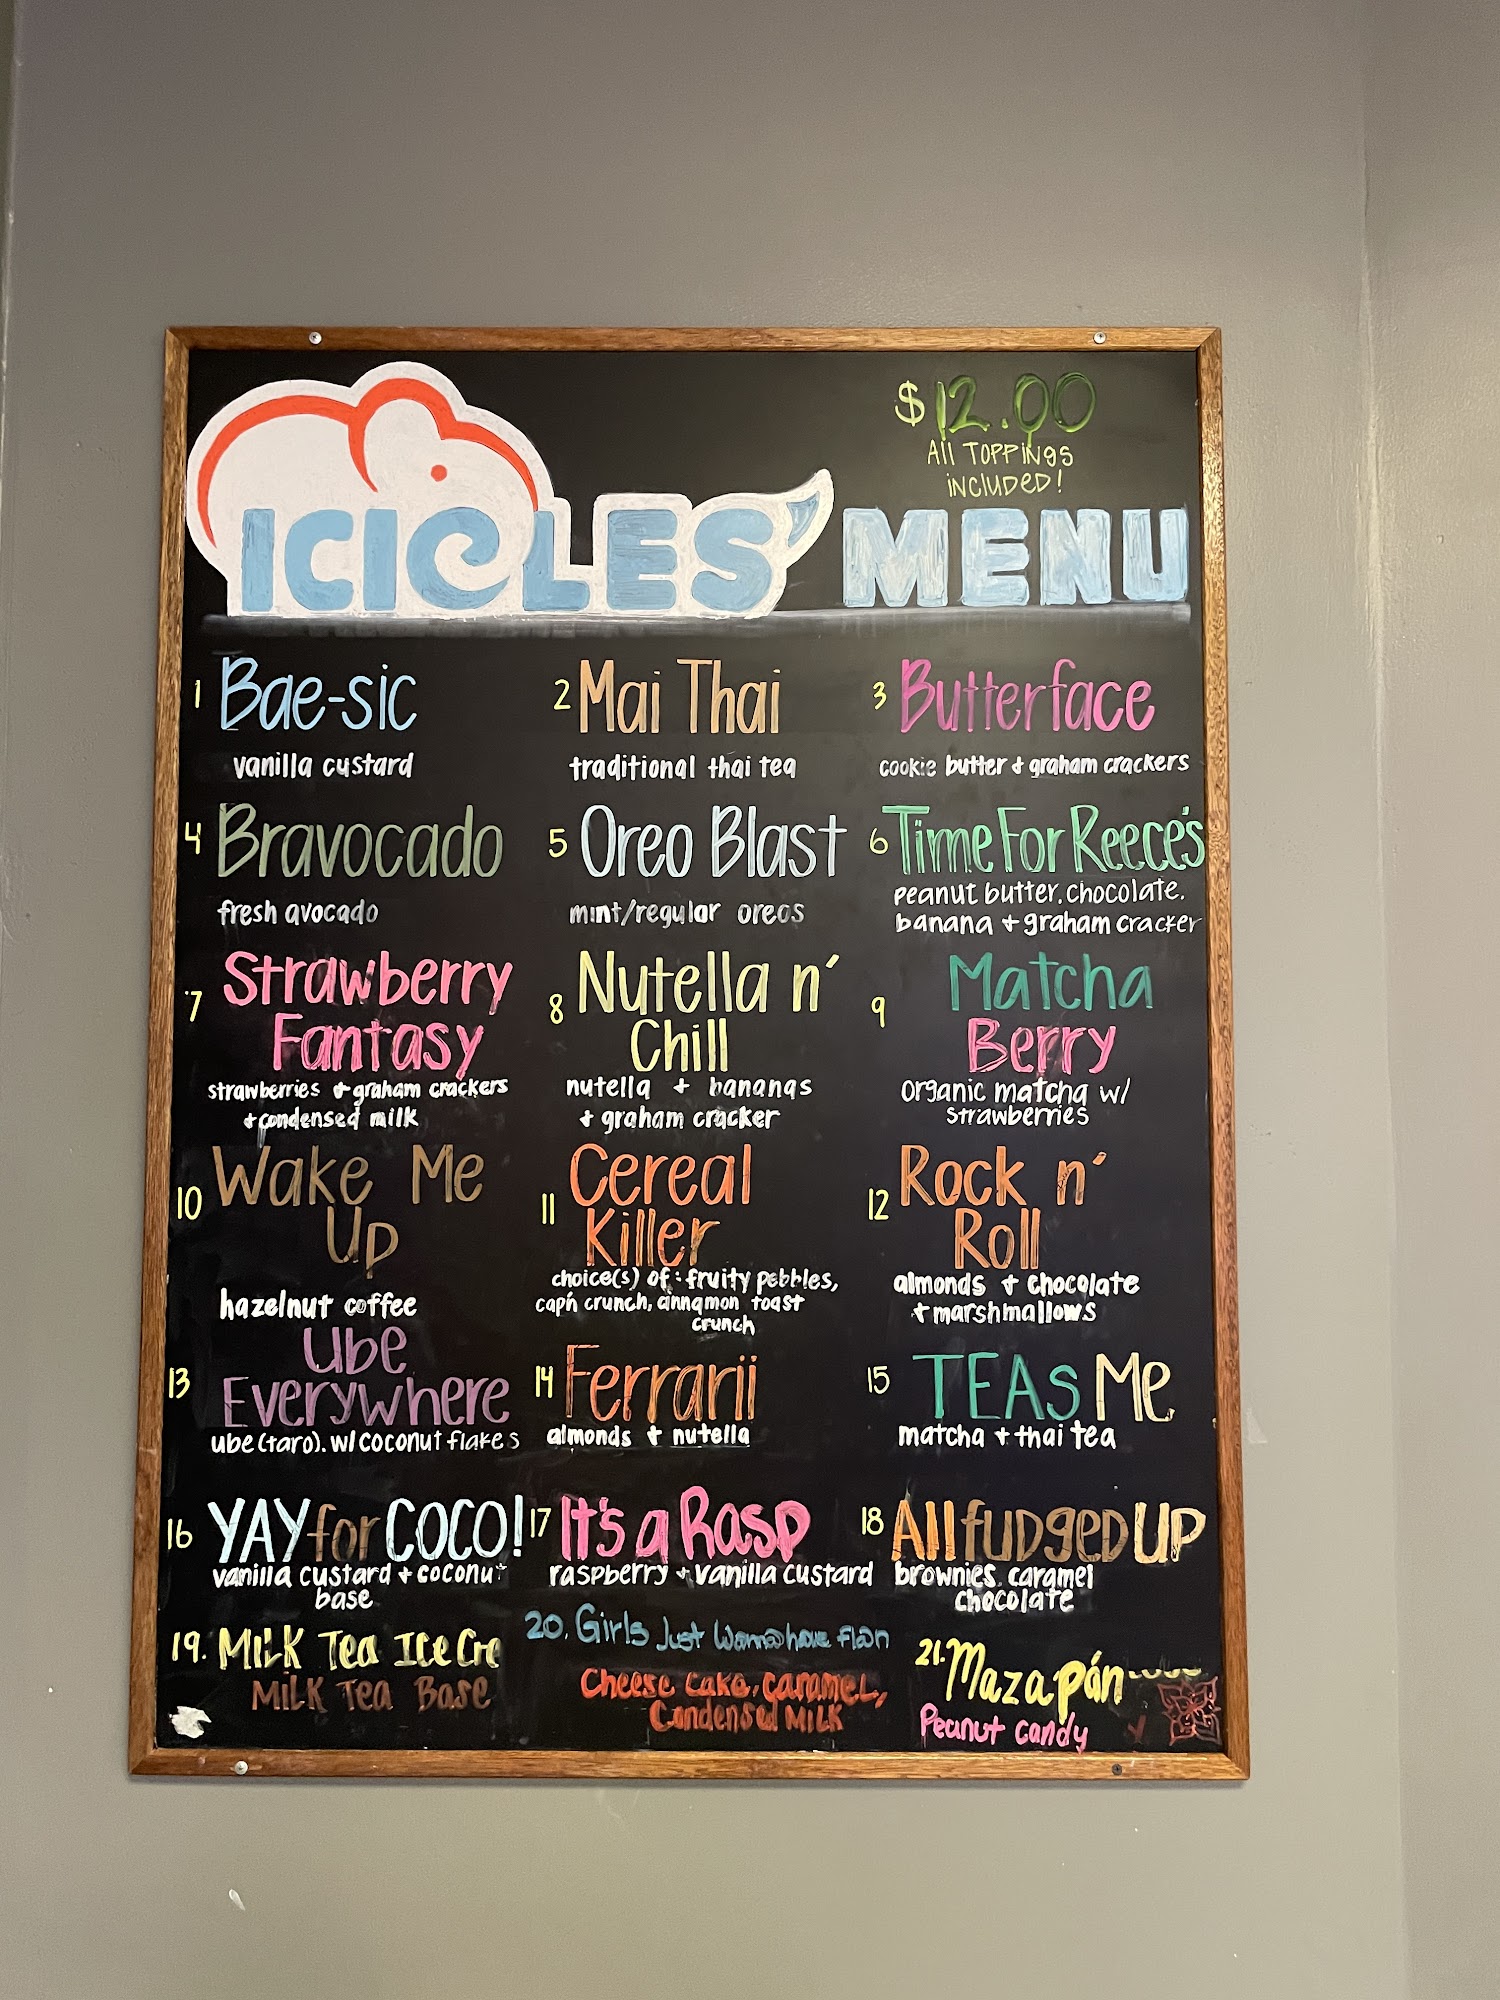 $12.00
All TOPPiNgs
iNCLUDeD!
ICICLES' MENU
1 Bae-sic
vanilla custard
2 Mai Thai
traditional thai tea
3 Butterface
cookie butter + graham crackers
4 Bravocado
fresh avocado
5 Oreo Blast
mint/regular oreos
6 Time For Reece's
peanut butter, chocolate,
banana + graham cracker
7 Strawberry
Fantasy
strawberries + graham crackers
+ condensed milk
8 Nutella n'
Chill
nutella + bananas
+ graham cracker
9 Matcha
Berry
organic matcha w/
strawberries
10 Wake Me
Up
hazelnut coffee
11 Cereal
Killer
choice(s) of: fruity pebbles,
cap'n crunch, cinnamon toast
crunch
12 Rock n'
Roll
almonds + chocolate
+ marshmallows
13 Ube
Everywhere
ube (taro). w/ coconut flakes
14 Ferrarii
almonds + nutella
15 TEAs Me
matcha + thai tea
16 YAY for COCO!
vanilla custard + coconut
base
17 It's a Rasp
raspberry + vanilla custard
18 All fuDgeD UP
brownies, caramel
chocolate
19. MiLK Tea Ice Cre
MiLK Tea Base
20. Girls Just Wanna have Flan
Cheese Cake, Caramel,
Condensed MiLK
21. Mazapán
Peanut candy